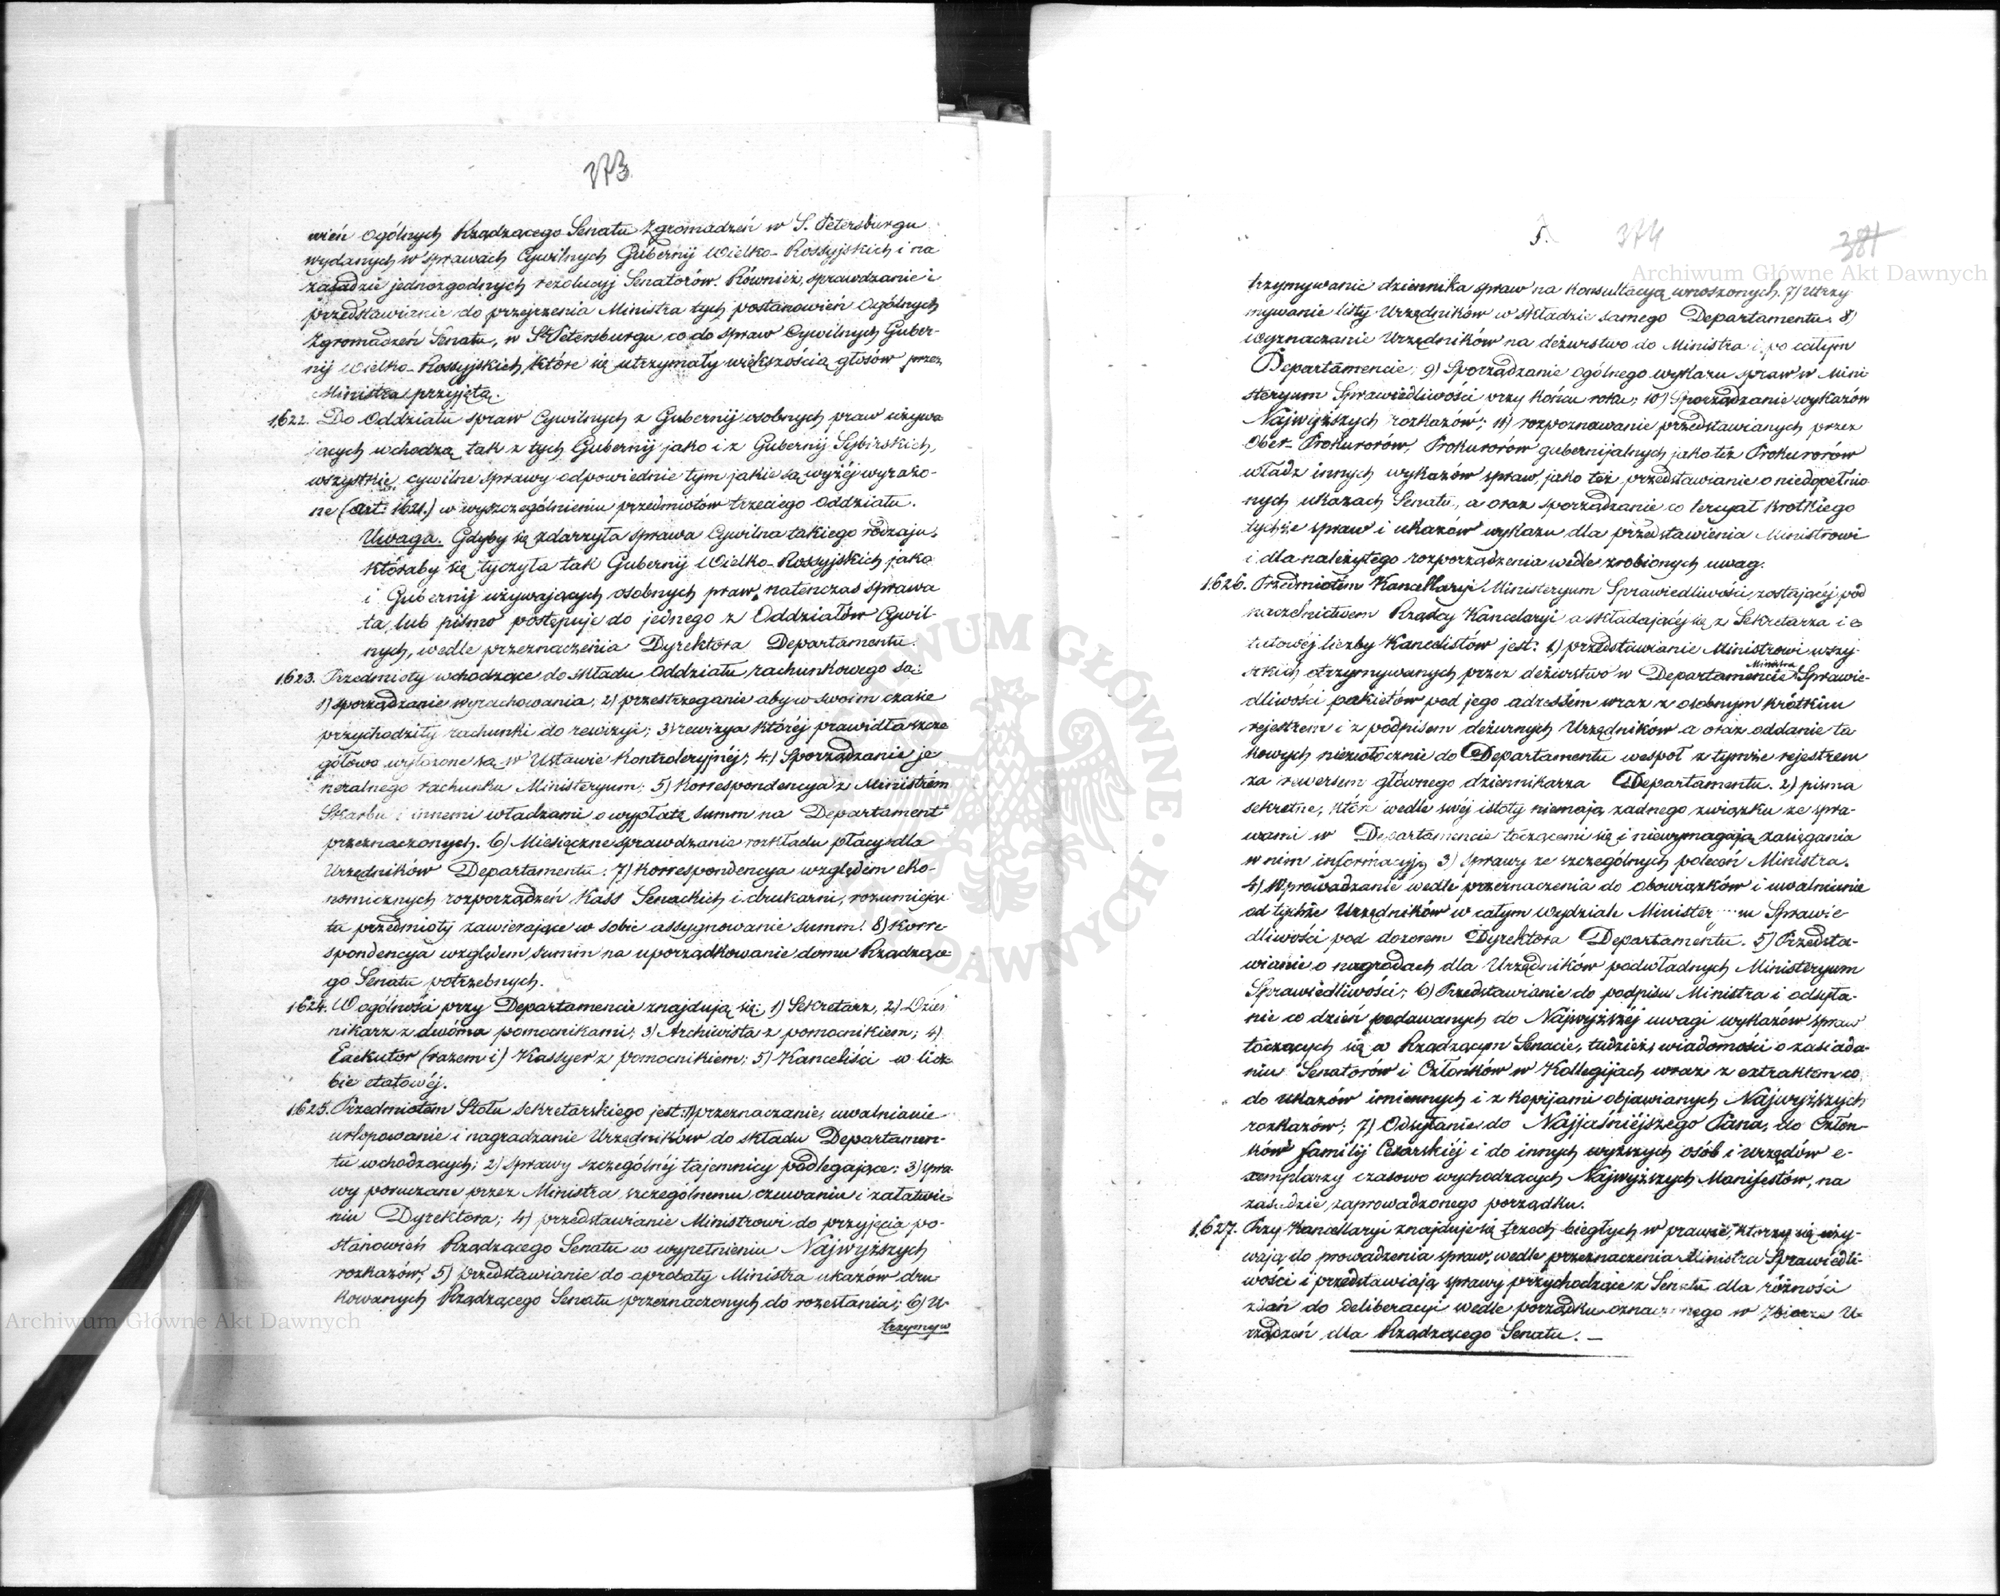 373
wień Ogólnych Rządzącego Senatu Zgromadzeń w S. Petersburgu
wydanych w sprawach Cywilnych Gubernij Wielko-Rossyjskich i na
zasadzie jednozgodnych rezolucyj Senatorów. Również, sprawdzanie i
przedstawianie do przejrzenia Ministra tych postanowień Ogólnych
Zgromadzeń Senatu, w St Petersburgu co do spraw Cywilnych Guber-
nij Wielko-Rossyjskich, które się utrzymały większością głosów przez
Ministra przyjętą.
1622. Do Oddziału spraw Cywilnych z Gubernij osobnych praw używa
jących wchodzą tak z tych Gubernij jako i z Gubernij Sybirskich,
wszystkie cywilne sprawy odpowiednie tym jakie są wyżej wyrażo-
ne (art: 1621.) w wyszczególnieniu przedmiotów trzeciego Oddziału.
Uwaga. Gdyby się zdarzyła sprawa Cywilna takiego rodzaju,
któraby się tyczyła tak Gubernij Wielko-Rossyjskich jako
i Gubernij używających osobnych praw, natenczas sprawa
ta, lub pismo postępuje do jednego z Oddziałów Cywil-
nych, wedle przeznaczenia Dyrektora Departamentu.
1623. Przedmioty wchodzące do składu Oddziału rachunkowego są:
1) sporządzanie wyrachowania, 2) przestrzeganie aby w swoim czasie
przychodziły rachunki do rewizyi; 3) rewizya której prawidła szcze
gółowo wyłożone są w Ustawie Kontroleryjnéj; 4) Sporządzanie je
neralnego rachunku Ministeryum; 5) Korrespondencya z Ministrem
Skarbu i innemi władzami o wypłatę summ na Departament
przeznaczonych. 6) Miesięczne sprawdzanie rozkładu płacy dla
Urzędników Departamentu. 7) Korrespondencya względem eko-
nomicznych rozporządzeń Kass Senackich i drukarni, rozumiejąc
tu przedmioty zawierające w sobie assygnowanie summ. 8) Korre-
spondencya względem summ na uporządkowanie domu Rządzące-
go Senatu potrzebnych.
1624. W ogólności przy Departamencie znajdują się: 1) Sekretarz, 2) Dzien
nikarz z dwóma pomocnikami; 3) Archiwista z pomocnikiem; 4)
Exekutor (razem i) Kassyer z pomocnikiem; 5) Kanceliści w licz-
bie etatowéj.
1625. Przedmiotem Stołu sekretarskiego jest: 1) przeznaczanie, uwalnianie
urlopowanie i nagradzanie Urzędników do składu Departamen-
tu wchodzących; 2) sprawy szczególnéj tajemnicy podlegające; 3) spra
wy poruczane przez Ministra szczególnemu czuwaniu i załatwie-
niu Dyrektora; 4) przedstawianie Ministrowi do przyjęcia po-
stanowień Rządzącego Senatu w wypełnieniu Najwyższych
rozkazów; 5) przedstawianie do aprobaty Ministra ukazów dru-
kowanych Rządzącego Senatu przeznaczonych do rozesłania; 6) U-
trzymyw
5. 374 381
trzymywanie dziennika spraw na konsultacyą wnoszonych. 7) Utrzy
mywanie listy Urzędników w składzie samego Departamentu. 8)
Wyznaczanie Urzędników na déżurstwo do Ministra i po całym
Departamencie; 9) Sporządzanie ogólnego wykazu spraw w Mini
steryum Sprawiedliwości przy końcu roku; 10) Sporządzanie wykazów
Najwyższych rozkazów; 11) rozpoznawanie przedstawianych przez
Ober-Prokurorów, Prokurorów gubernijalnych jako też Prokurorów
władz innych wykazów spraw, jako też przedstawianie o niedopełnio
nych ukazach Senatu, a oraz sporządzanie co tercyał krótkiego
tychże spraw i ukazów wykazu dla przedstawienia Ministrowi
i dla należytego rozporządzenia wedle zrobionych uwag.
1626. Przedmiotem Kancellaryi Ministeryum Sprawiedliwości, zostającéj pod
naczelnictwem Rządcy Kancelaryi a składającéj się z Sekretarza i e
tatowéj liczby Kancelistów jest: 1) przedstawianie Ministrowi wszy-
stkich otrzymywanych przez déżurstwo w Departamencie Ministra Sprawie-
dliwości pakietów pod jego adressem wraz z osobnym krótkim
rejestrem i z podpisem déżurnych Urzędników a oraz oddanie ta
kowych niezwłocznie do Departamentu wespół z tymże rejestrem
za rewersem głównego dziennikarza Departamentu. 2) pisma
sekretne, które wedle swéj istoty niemają żadnego związku ze spra-
wami w Departamencie toczącemi się i niewymagają zasięgania
w nim informacyj; 3) sprawy ze szczególnych poleceń Ministra.
4) Wprowadzanie wedle przeznaczenia do obowiązków i uwalnianie
od tychże Urzędników w całym wydziale Minister m Sprawie
dliwości pod dozorem Dyrektora Departamentu. 5) Przedsta-
wianie o nagrodach dla Urzędników podwładnych Ministeryum
Sprawiedliwości; 6) Przedstawianie do podpisu Ministra i odsyła-
nie co dzień podawanych do Najwyższéj uwagi wykazów spraw
toczących się w Rządzącym Senacie, tudzież, wiadomości o zasiada-
niu Senatorów i Członków w Kollegijach wraz z extraktem co
do ukazów imiennych i z kopijami objawianych Najwyższych
rozkazów; 7) Odsyłanie do Najjaśniejszego Pana, do Człon-
ków familij Cesarskiéj i do innych wyższych osób i urzędów e-
xemplarzy czasowo wychodzących Najwyższych Manifestów, na
zasadzie zaprowadzonego porządku.
1627. Przy Kancellaryi znajduje się trzech biegłych w prawie, którzy się uży-
wają do prowadzenia spraw, wedle przeznaczenia Ministra Sprawiedli-
wości i przedstawiają sprawy przychodzące z Senatu dla różności
zdań do deliberacyi wedle porządku oznaczonego w Zbiorze U-
rządzeń dla Rządzącego Senatu. —
Archiwum Główne Akt Dawnych
Archiwum Główne Akt Dawnych